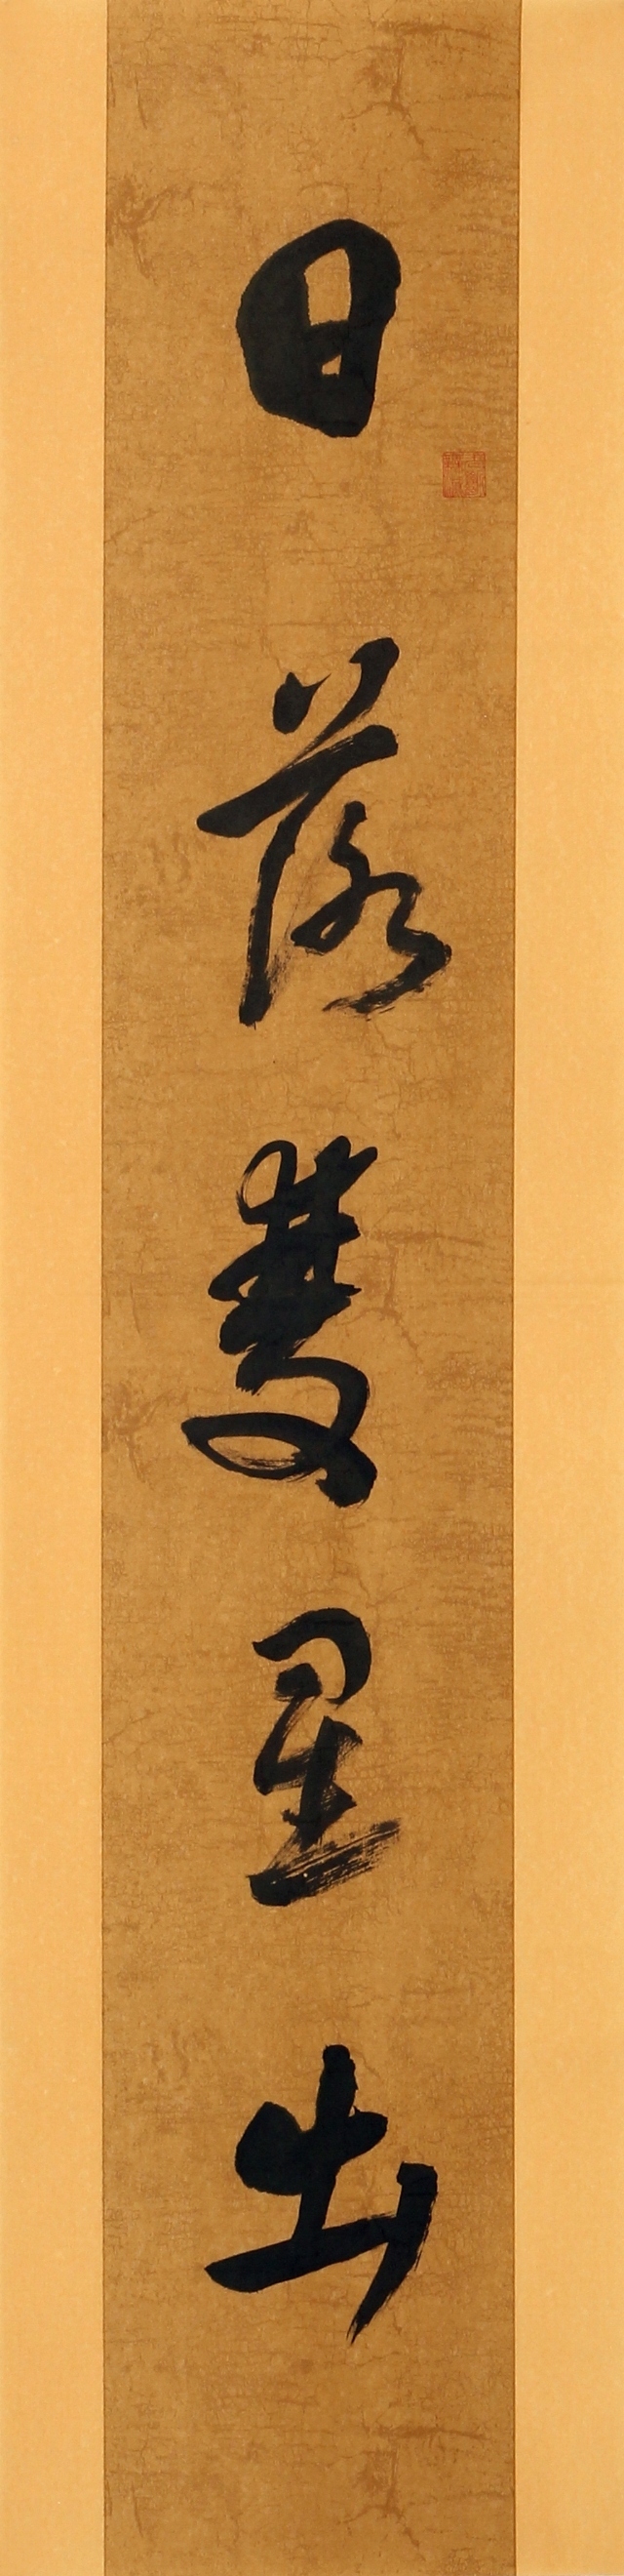 日落雙星出